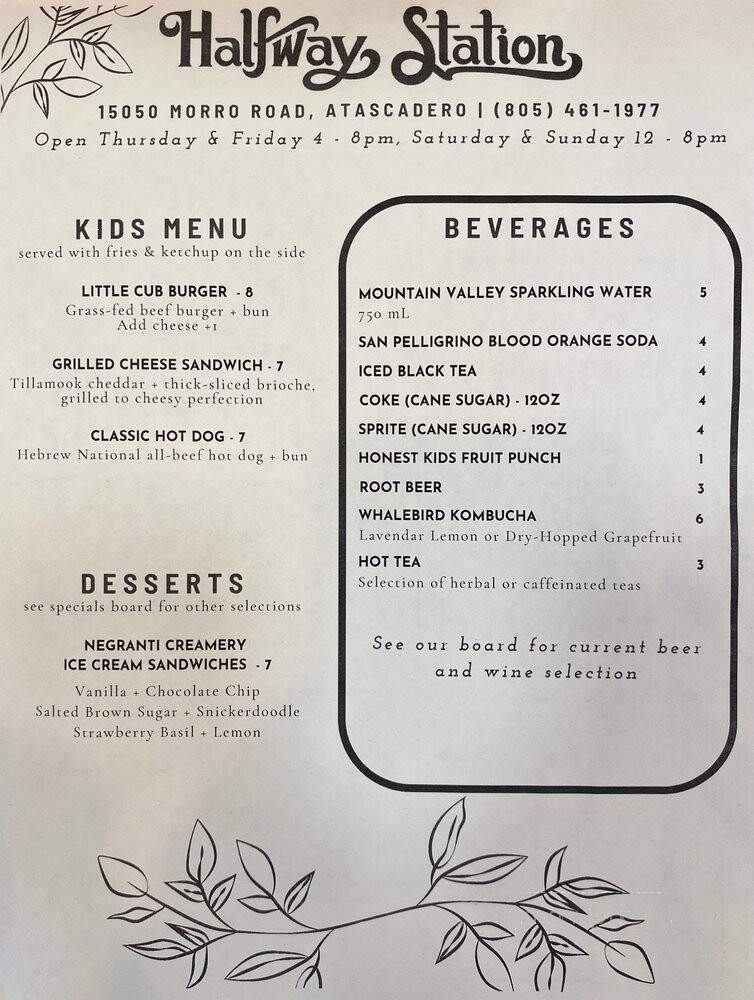 Halfway Station
15050 MORRO ROAD, ATASCADERO | (805) 461-1977
Open Thursday & Friday 4 - 8pm, Saturday & Sunday 12 - 8pm
KIDS MENU
served with fries & ketchup on the side
LITTLE CUB BURGER - 8
Grass-fed beef burger + bun
Add cheese +1
GRILLED CHEESE SANDWICH - 7
Tillamook cheddar + thick-sliced brioche,
grilled to cheesy perfection
CLASSIC HOT DOG - 7
Hebrew National all-beef hot dog + bun
DESSERTS
see specials board for other selections
NEGRANTI CREAMERY
ICE CREAM SANDWICHES - 7
Vanilla + Chocolate Chip
Salted Brown Sugar + Snickerdoodle
Strawberry Basil + Lemon
BEVERAGES
MOUNTAIN VALLEY SPARKLING WATER 5
750 mL
SAN PELLIGRINO BLOOD ORANGE SODA 4
ICED BLACK TEA 4
COKE (CANE SUGAR) - 12OZ 4
SPRITE (CANE SUGAR) - 12OZ 4
HONEST KIDS FRUIT PUNCH 1
ROOT BEER 3
WHALEBIRD KOMBUCHA 6
Lavendar Lemon or Dry-Hopped Grapefruit
HOT TEA 3
Selection of herbal or caffeinated teas
See our board for current beer
and wine selection